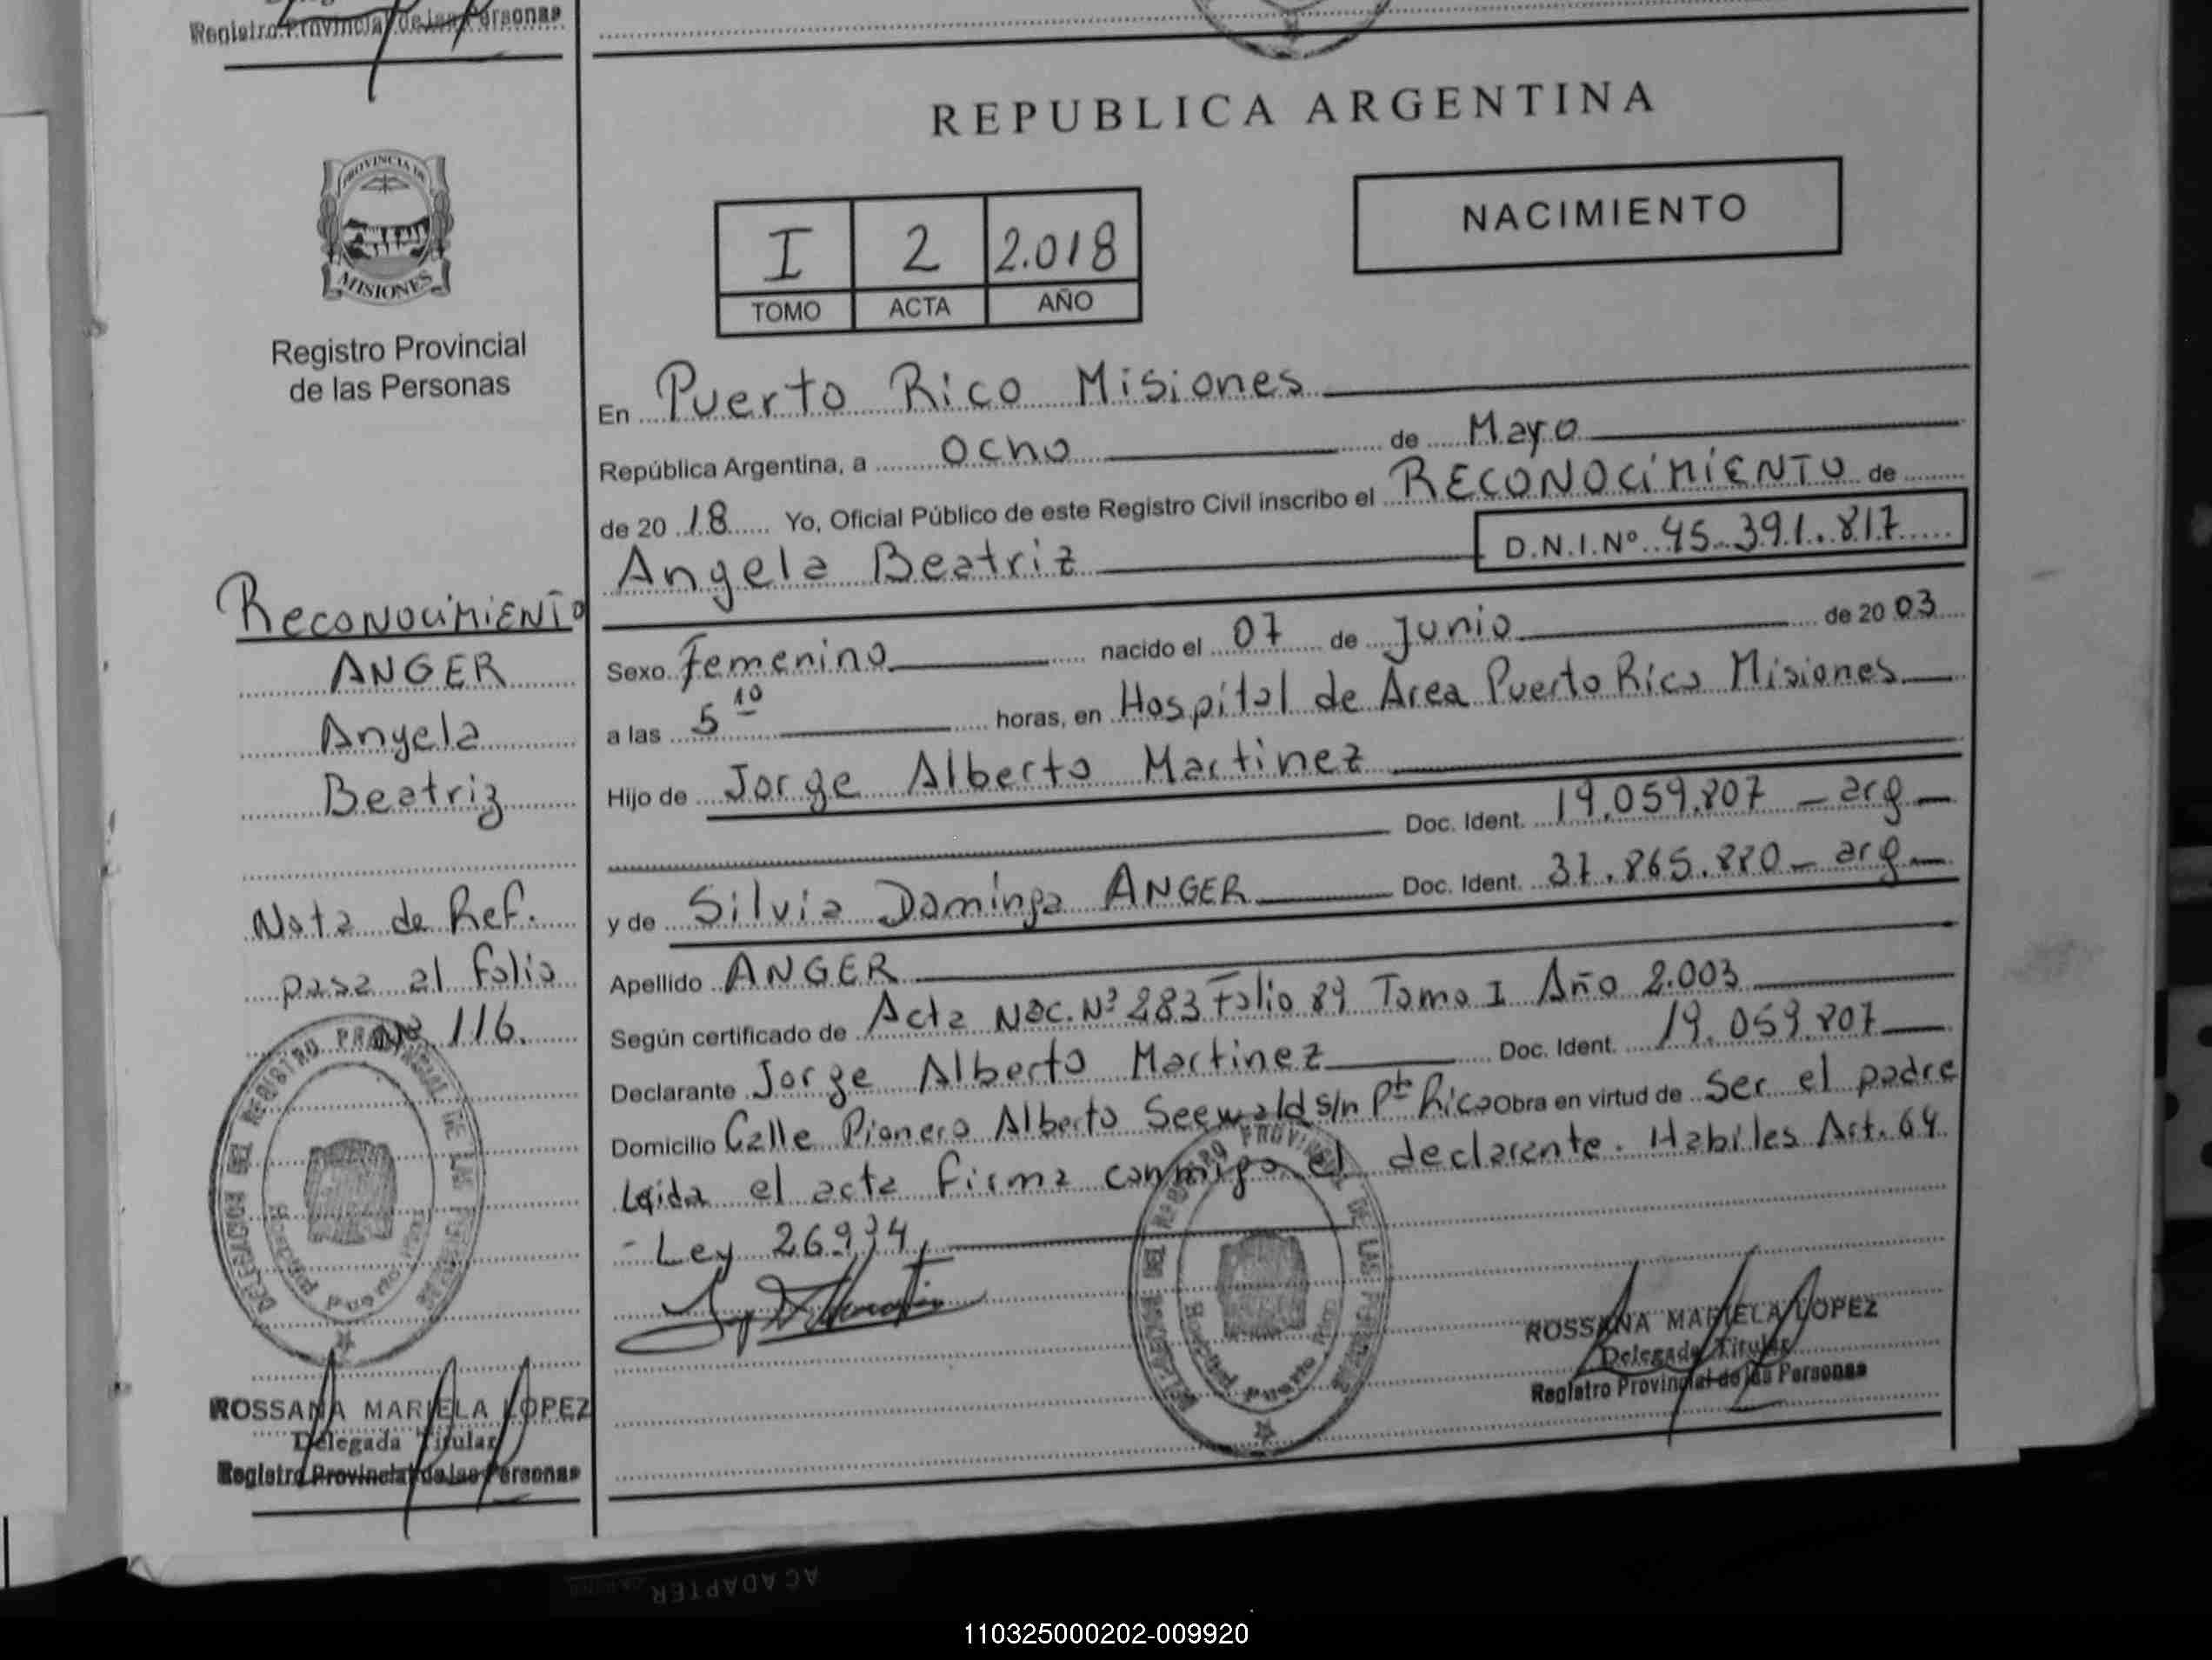 Registro Provincial de las Personas
REPUBLICA ARGENTINA
PROVINCIA DE
MISIONES
Registro Provincial
de las Personas
I 2 2.018
TOMO ACTA AÑO
NACIMIENTO
En Puerto Rico Misiones
República Argentina, a ocho de Mayo
de 2018 Yo, Oficial Público de este Registro Civil inscribo el RECONOCIMIENTO de
Angela Beatriz D.N.I.Nº 45.391.817
Sexo Femenino nacido el 07 de Junio de 2003
a las 5 10 horas, en Hospital de Area Puerto Rico Misiones
Hijo de Jorge Alberto Martinez
Doc. Ident. 19.059.807 - arg -
y de Silvia Dominga ANGER Doc. Ident. 37.865.880 - arg -
Apellido ANGER
Según certificado de Acta Nac. Nº 283 Folio 89 Tomo I Año 2.003
Declarante Jorge Alberto Martinez Doc. Ident. 19.059.807
Domicilio Calle Pionero Alberto Seewald s/n Pto Rico Obra en virtud de Ser el padre
Leida el acta firma conmigo el declarante. Habiles Art. 64
- Ley 26994
RECONOCIMIENTO
ANGER
Angela
Beatriz
Nota de Ref.
pasa al folio
Nº 116.
DELEGADO DEL REGISTRO PROVINCIAL DE LAS PERSONAS
Puerto Rico
ROSSANA MARIELA LOPEZ
Delegada Titular
Registro Provincial de las Personas
DEL REGISTRO PROVINCIAL DE LAS PERSONAS
Puerto Rico
ROSSANA MARIELA LOPEZ
Delegada Titular
Registro Provincial de las Personas
AC ADAPTER
110325000202-009920